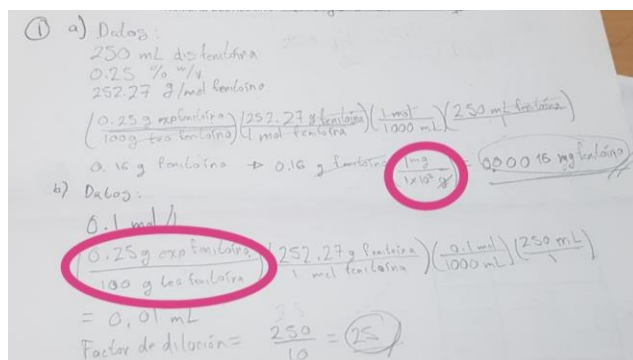 ① a) Datos:
250 mL dis fenitoína
0.25 % w/v
252.27 g/mol fenitoína
(0.25 g exp fenitoína / 100 g teo fenitoína) (252.27 g fenitoína / 1 mol fenitoína) (1 mol / 1000 mL) (250 mL fenitoína / 1)
0.16 g fenitoína → 0.16 g fenitoína (1mg / 1x10³ g) = 0.000 16 mg fenitoína
b) Datos:
0.1 mol/
(0.25 g exp fenitoína / 100 g teo fenitoína) (252.27 g fenitoína / 1 mol fenitoína) (0.1 mol / 1000 mL) (250 mL / 1)
= 0,01 mL
Factor de dilución = 250 / 10 = 25